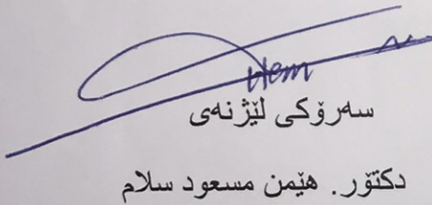 Hem
سەرۆکی لێژنەی
دکتۆر. هێمن مسعود سلام